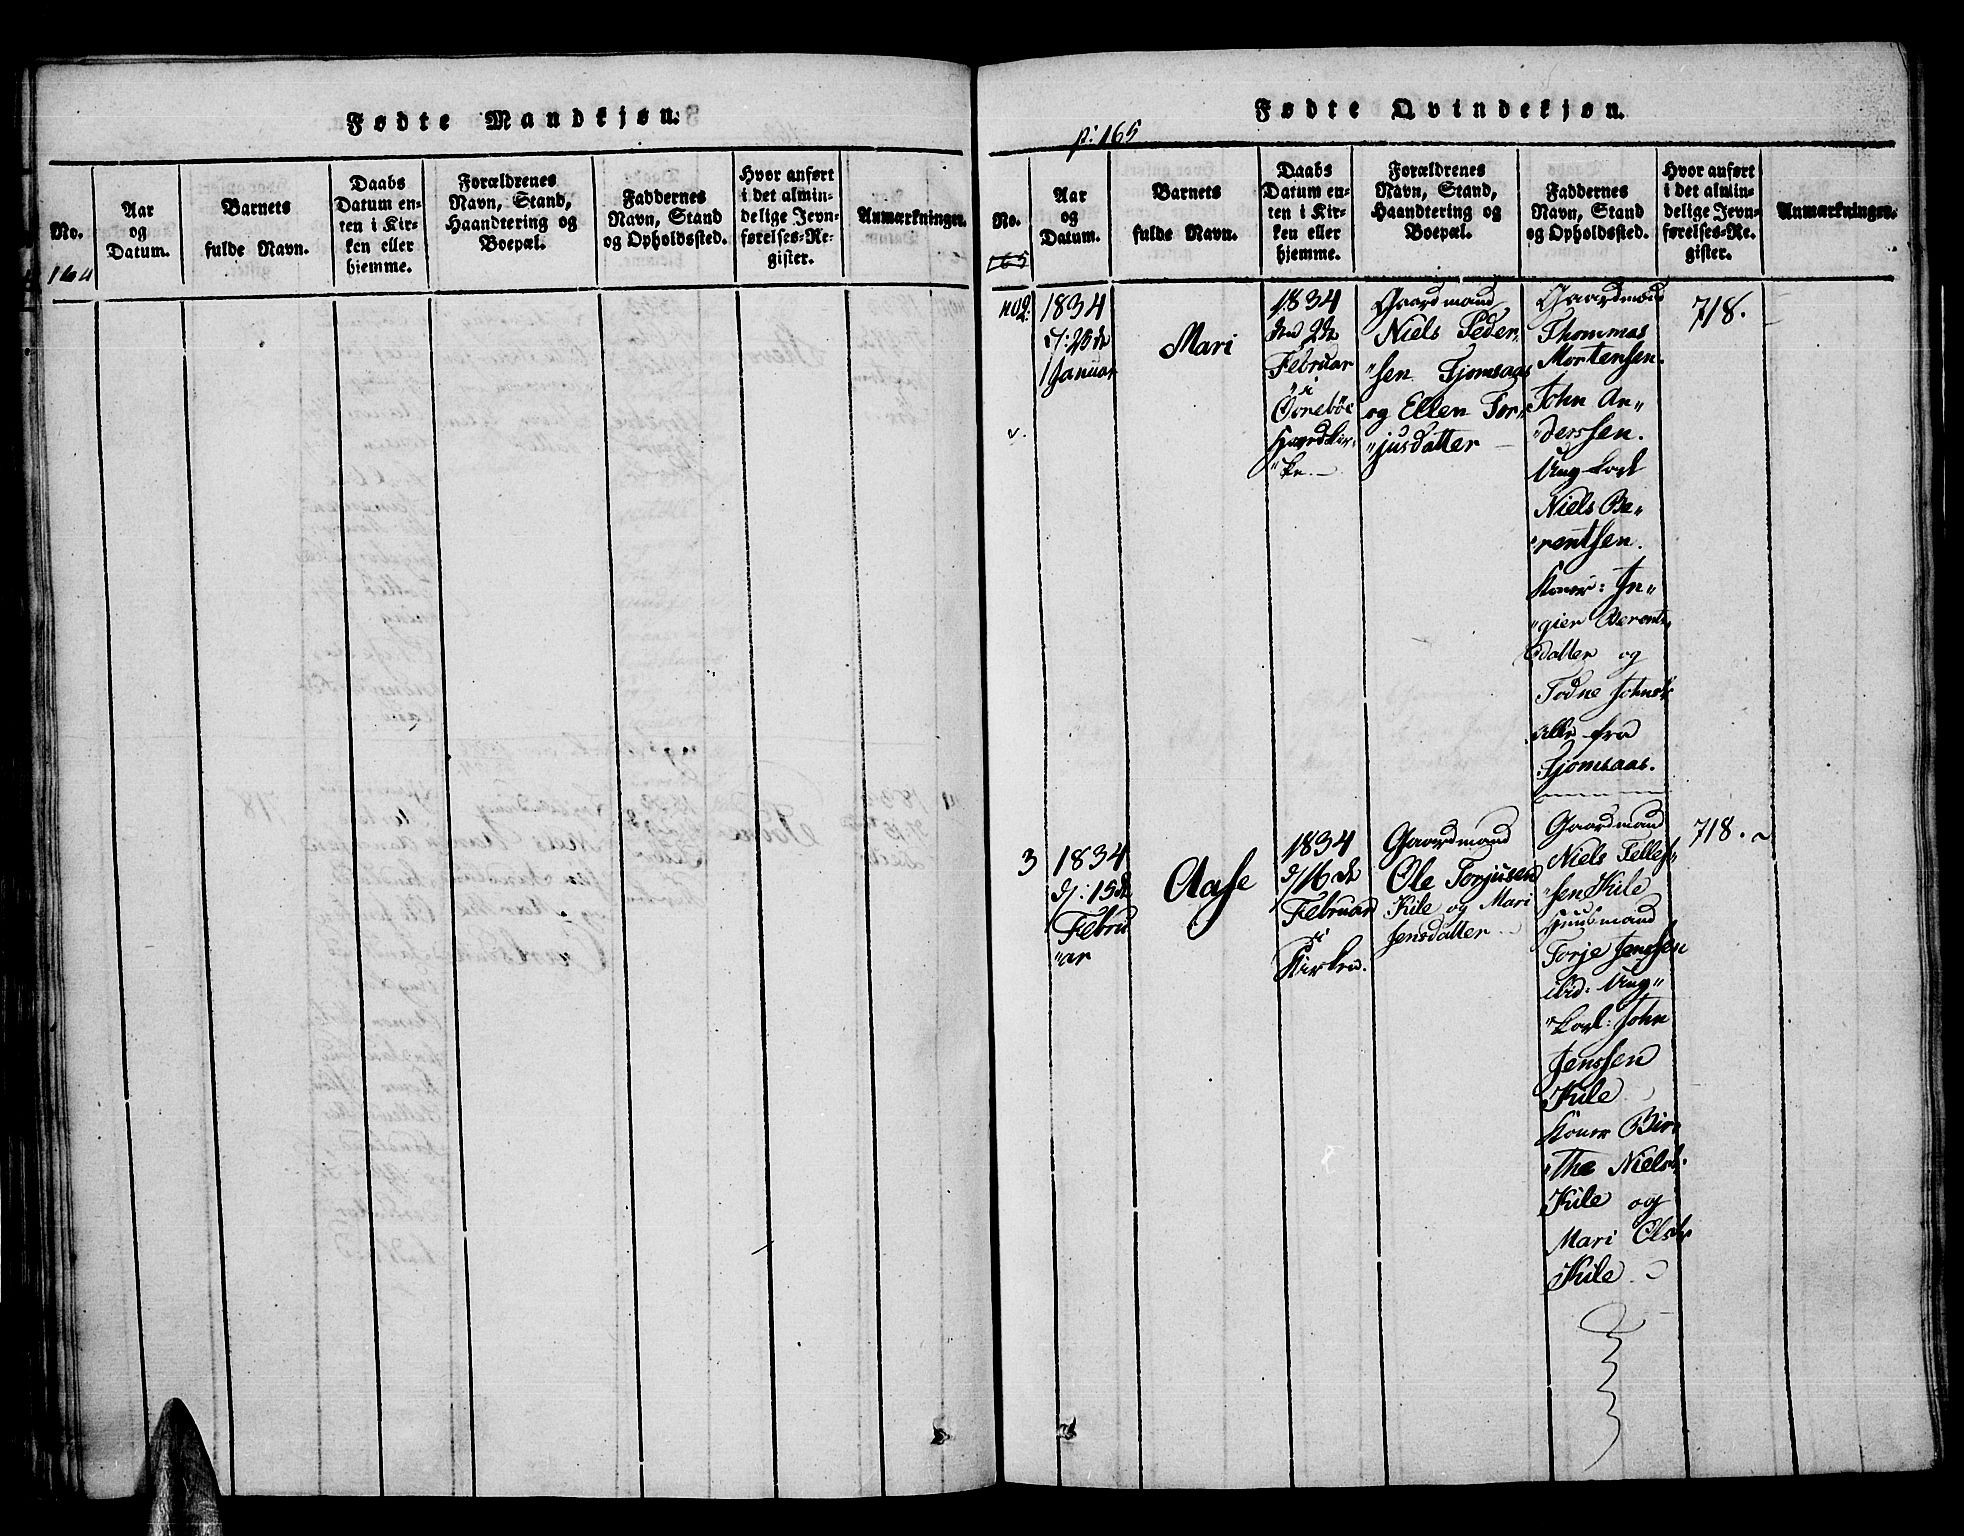 Fødte Mandkjøn.
No.
164
Aar
og
Datum.
Barnets
fulde Navn.
Daabs
Datum en-
ten i Kir-
ken eller
hjemme.
Forældrenes
Navn, Stand,
Haandtering og
Boepæl.
Faddernes
Navn, Stand
og Opholdssted.
Hvor anført
i det almin-
delige Jevn-
førelses-Re-
gister.
Anmærkninger.
Fødte Qvindekjøn.
p: 165
No.
165
Aar
og
Datum.
Barnets
fulde Navn.
Daabs
Datum en-
ten i Kir-
ken eller
hjemme.
Forældrenes
Navn, Stand,
Haandtering og
Boepæl.
Faddernes
Navn, Stand
og Opholdssted.
Hvor anført
i det almin-
delige Jevn-
førelses-Re-
gister.
Anmærkninger.
no 2.
1834
d: 25de
Januar
Mari
1834
den 2de
Februar
i
Øvrebøe
Hovedkir-
"ke.
Gaardmand
Niels Peder-
"sen Tjomsaas
og Ellen Tor-
"jusdatter
Gaardmænd
Thommas
Mortensen.
John An-
"derssen.
Ung-Karl
Niels Be-
"rentsen.
Koner: In-
"gier Berents
datter og
Todne Johnsdr
alle fra
Tjomsaas.
718.
3
1834
d: 15de
Febru
"ar
Aase
1834
d/16de
Februar
i
Kirken.
Gaardmand
Ole Torjusen
Kile og Mari
Jensdatter
Gaardmand
Niels Tellef-
"sen Kile
Huusmand
Torje Jenssen
ibid: Ung-
"karl: John
Jenssen
Kile
Koner Bir-
"the Nielsdr.
Kile og
Mari Olsdr
Kile
718.